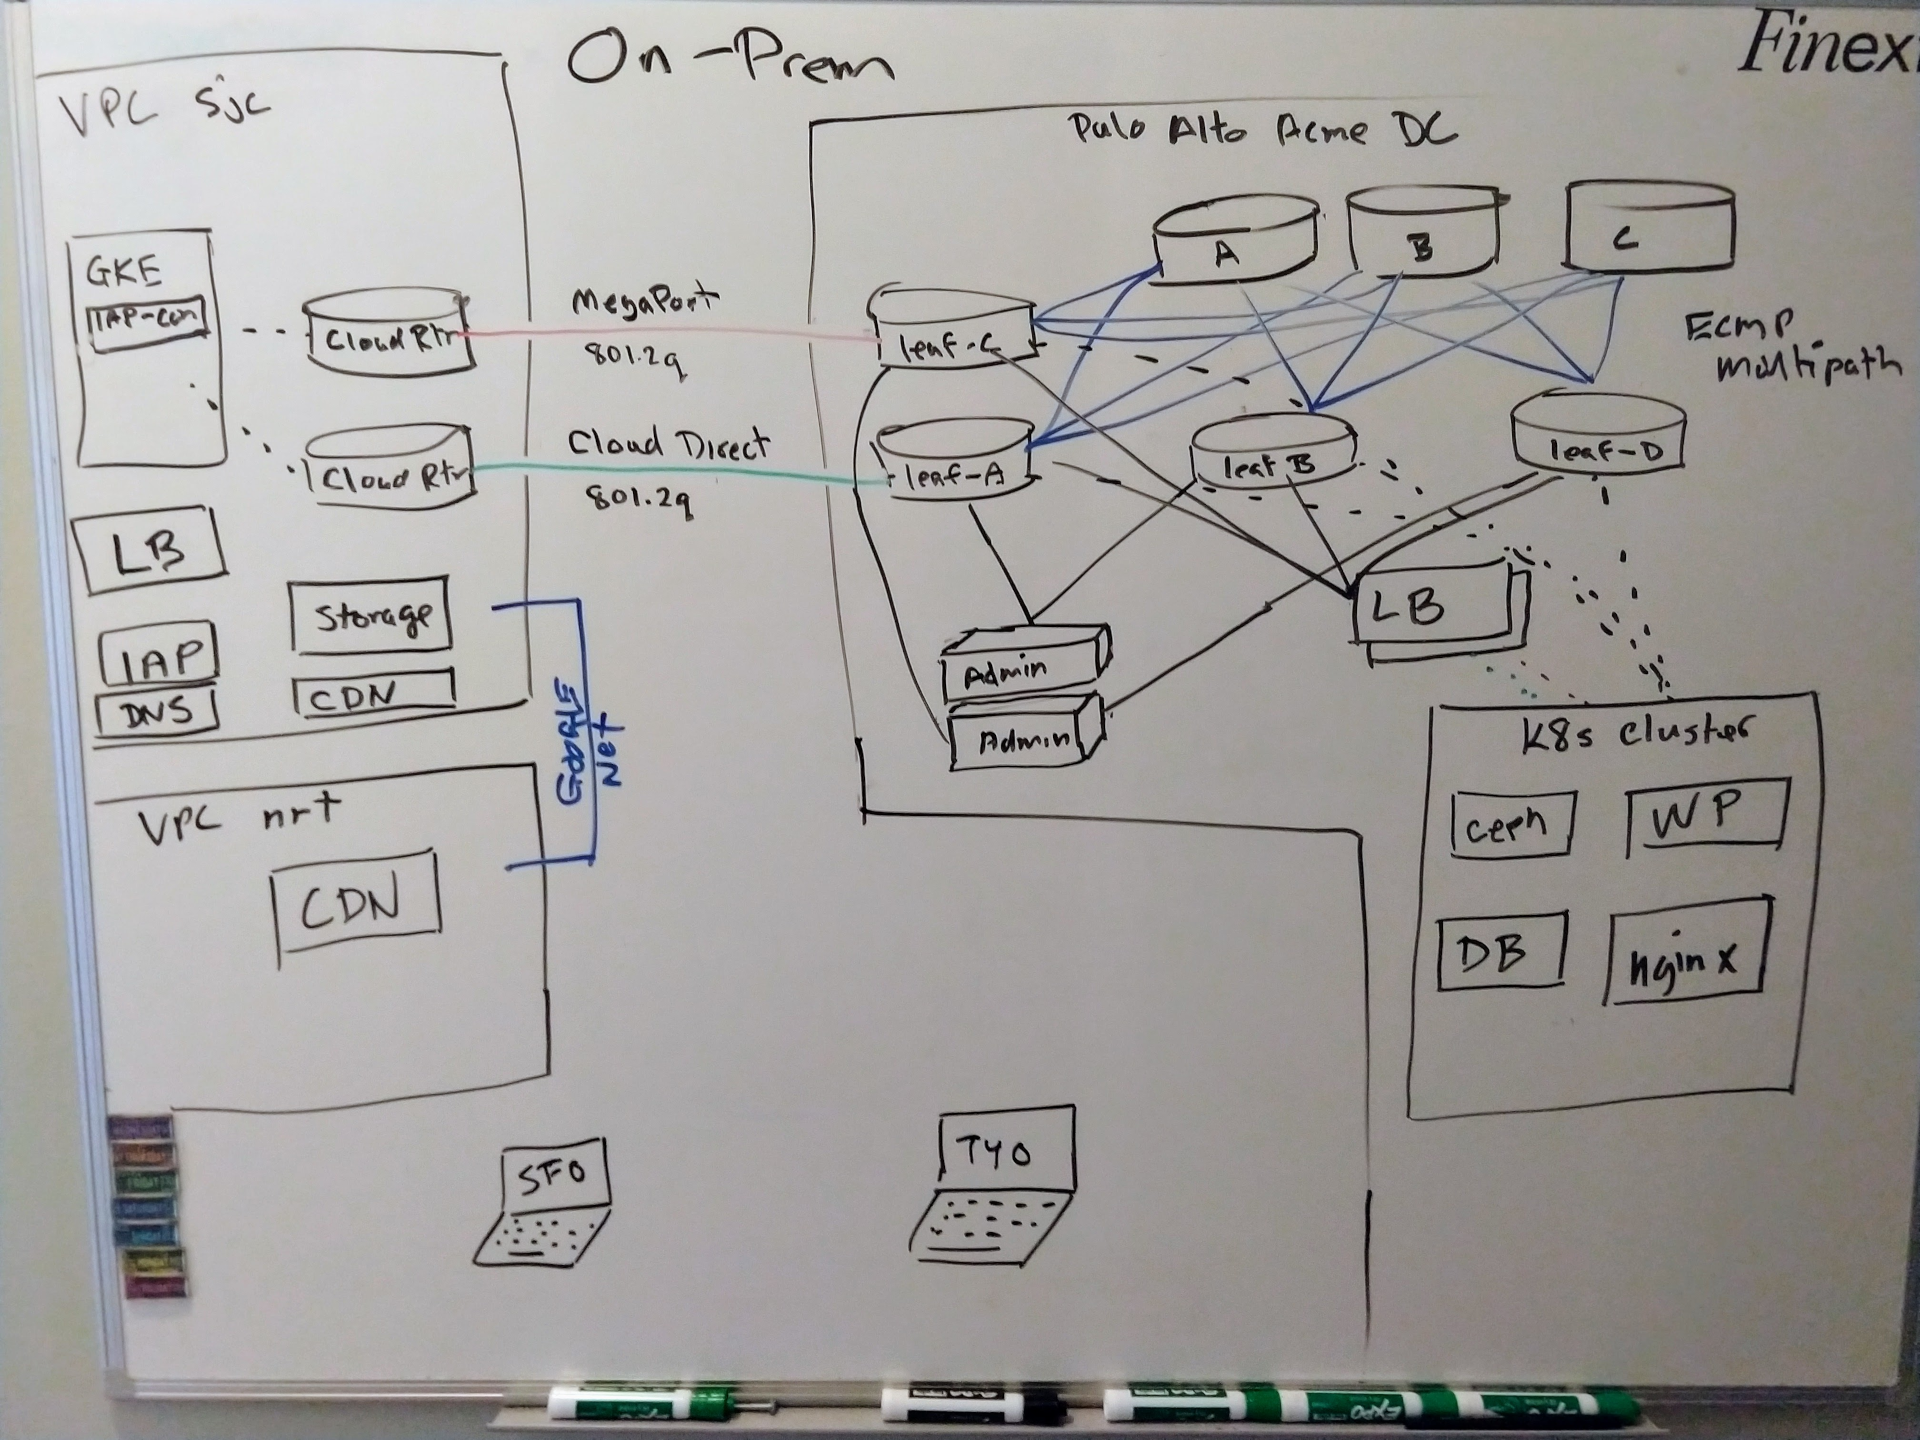 On-Prem
Finex
VPC sjc
GKE
IAP-con
Cloud Rtr
Cloud Rtr
LB
IAP
DNS
Storage
CDN
MegaPort
801.2q
Cloud Direct
801.2q
Google
Net
VPC nrt
CDN
Palo Alto Acme DC
A
B
C
Ecmp
multipath
leaf-C
leaf-A
leaf B
leaf-D
Admin
Admin
LB
K8s cluster
ceph
WP
DB
nginx
SFO
TYO
EXPO